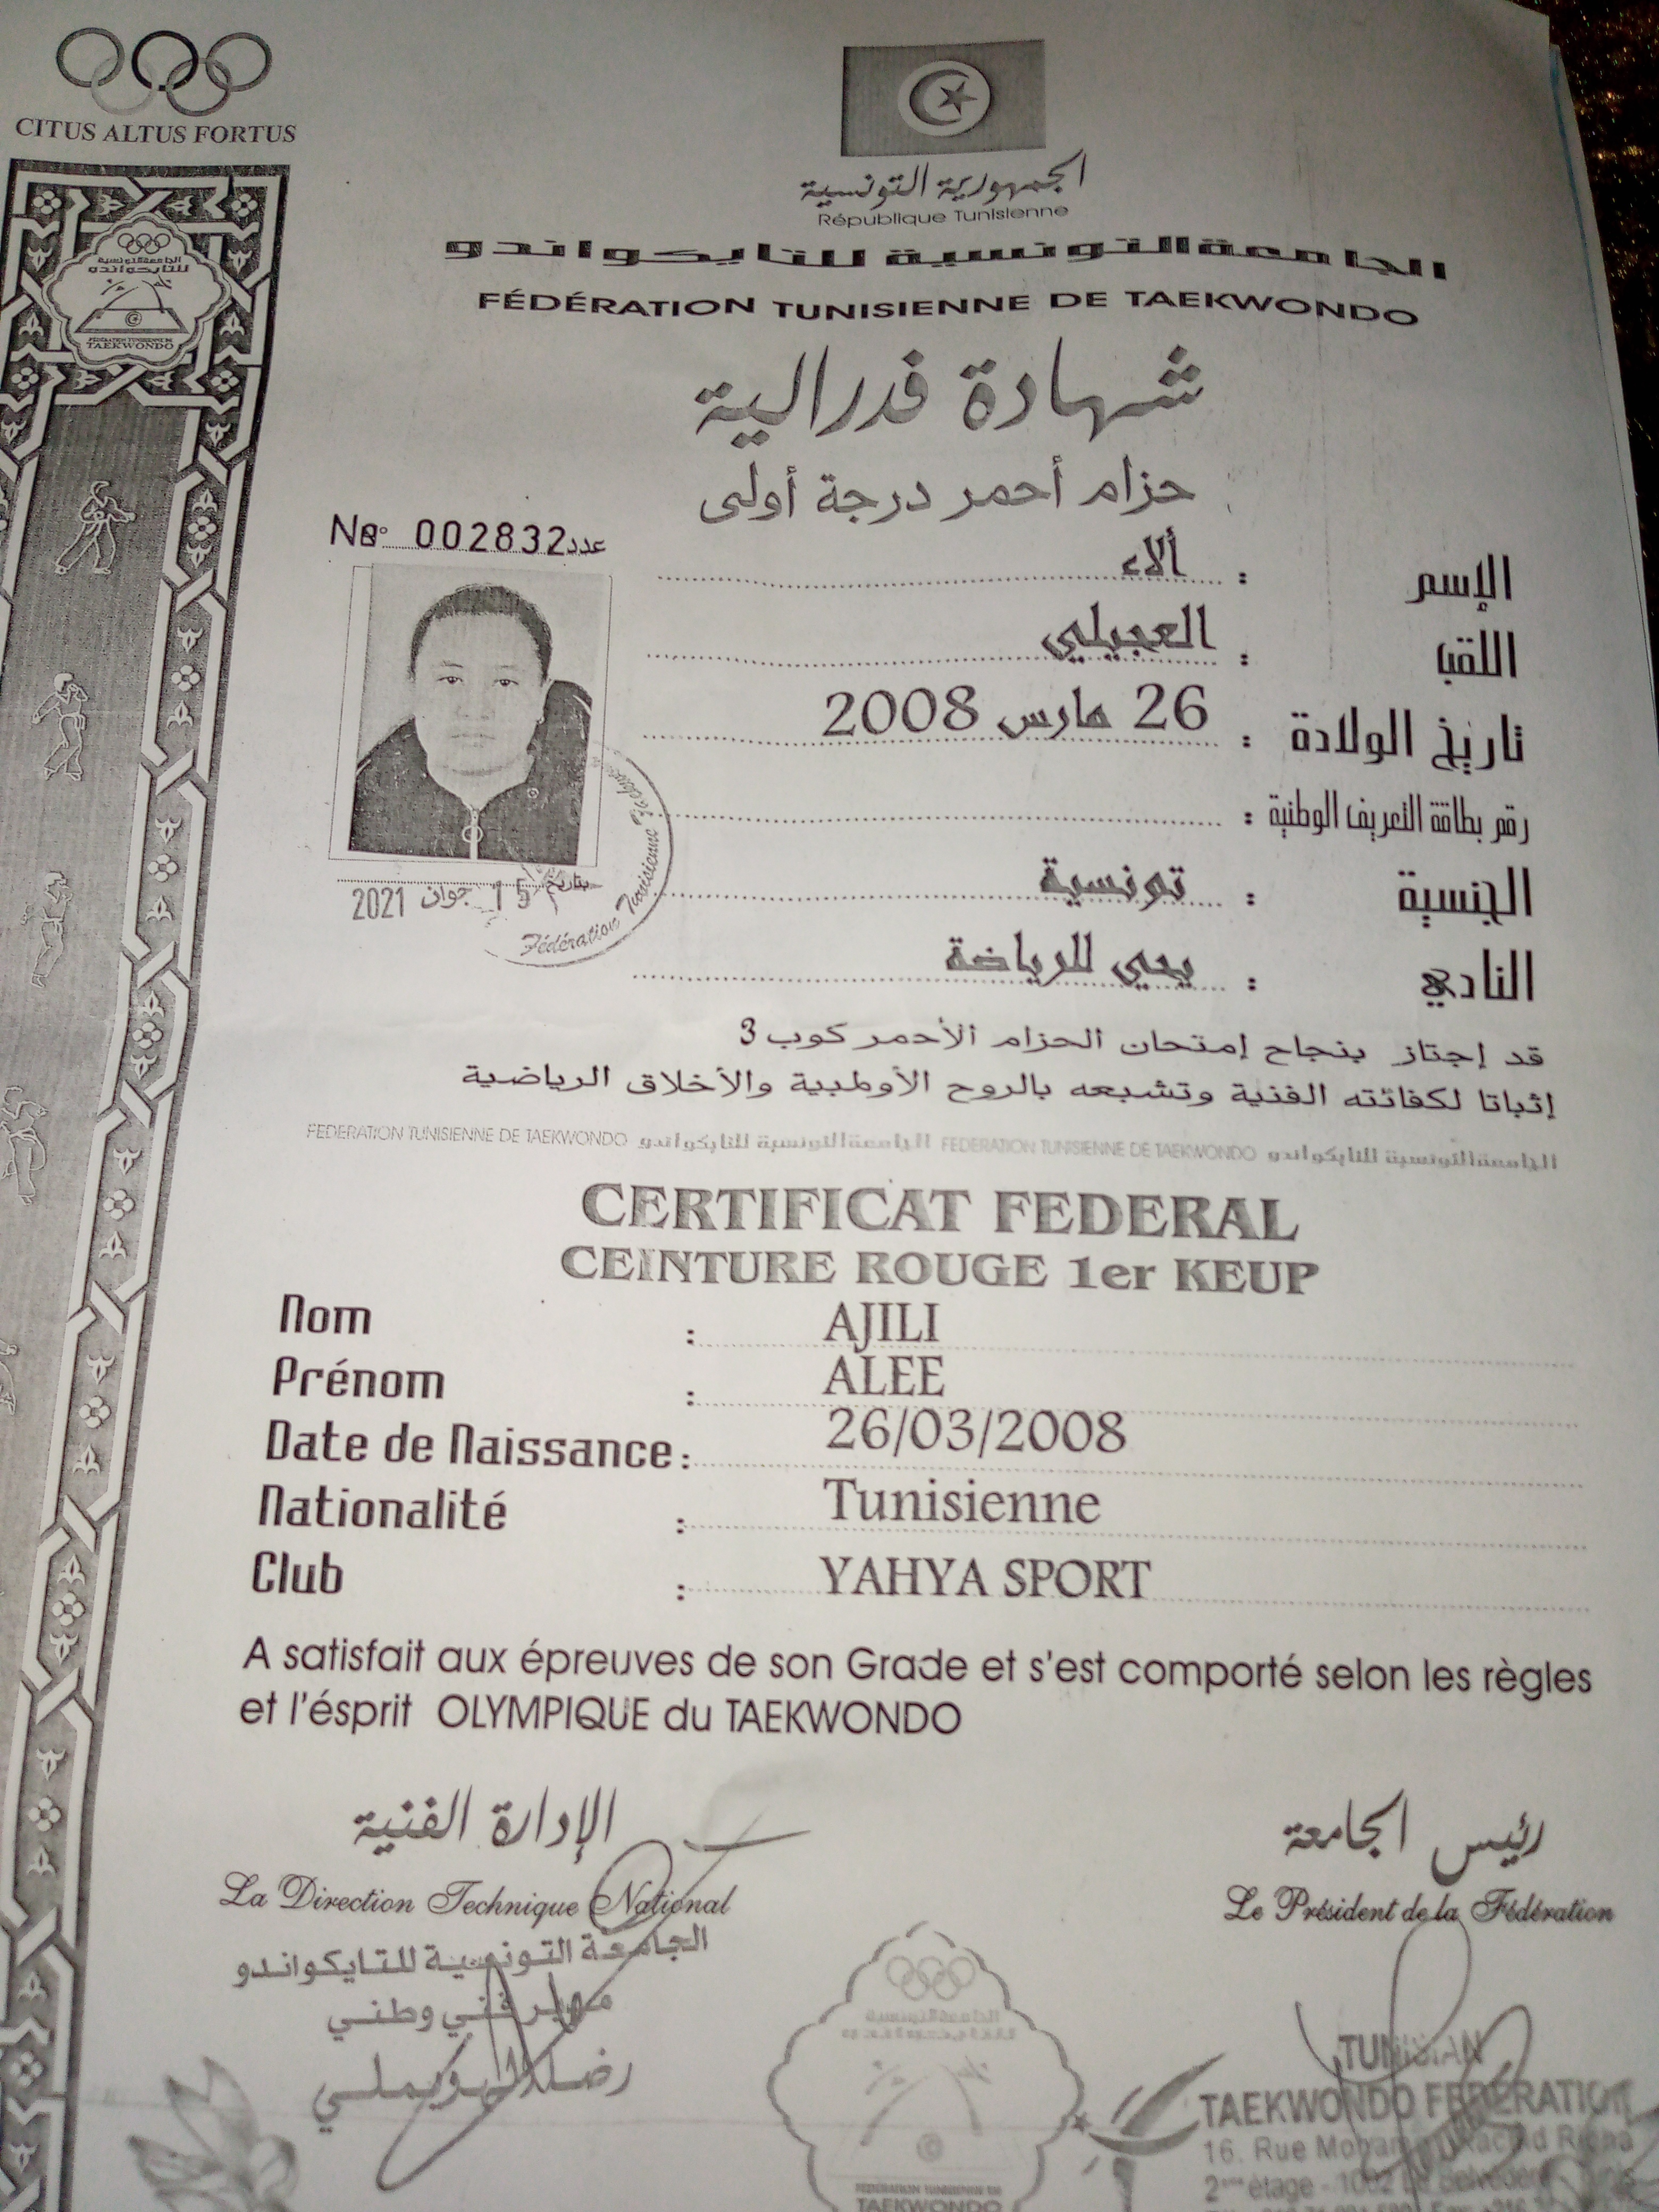 CITUS ALTUS FORTUS
الجمهورية التونسية
République Tunisienne
الجامعة التونسية للتايكواندو
FÉDÉRATION TUNISIENNE DE TAEKWONDO
الجامعة التونسية
للتايكواندو
FÉDÉRATION TUNISIENNE DE
TAEKWONDO
شهادة فدرالية
حزام أحمر درجة أولى
No 002832 عدد
الإسم : ألاء
اللقب : العجيلي
تاريخ الولادة : 26 مارس 2008
رقم بطاقة التعريف الوطنية :
الجنسية : تونسية
النادي : يحيي للرياضة
بتاريخ 15 جوان 2021
Fédération Tunisienne
قد إجتاز بنجاح إمتحان الحزام الأحمر كوب 3
إثباتا لكفائته الفنية وتشبعه بالروح الأولمبية والأخلاق الرياضية
FEDERATION TUNISIENNE DE TAEKWONDO الجامعة التونسية للتايكواندو FEDERATION TUNISIENNE DE TAEKWONDO الجامعة التونسية للتايكواندو
CERTIFICAT FEDERAL
CEINTURE ROUGE 1er KEUP
Nom : AJILI
Prénom : ALEE
Date de Naissance : 26/03/2008
Nationalité : Tunisienne
Club : YAHYA SPORT
A satisfait aux épreuves de son Grade et s'est comporté selon les règles
et l'ésprit OLYMPIQUE du TAEKWONDO
الإدارة الفنية
La Direction Technique National
رئيس الجامعة
Le Président de la Fédération
الجامعة التونسية للتايكواندو
مدير فني وطني
رضا
TUNISIAN
TAEKWONDO FEDERATION
16. Rue Mohamed Rachid Ridha
2ème étage - 1002 Le Belvédère - Tunis
FÉDÉRATION TUNISIENNE DE
TAEKWONDO